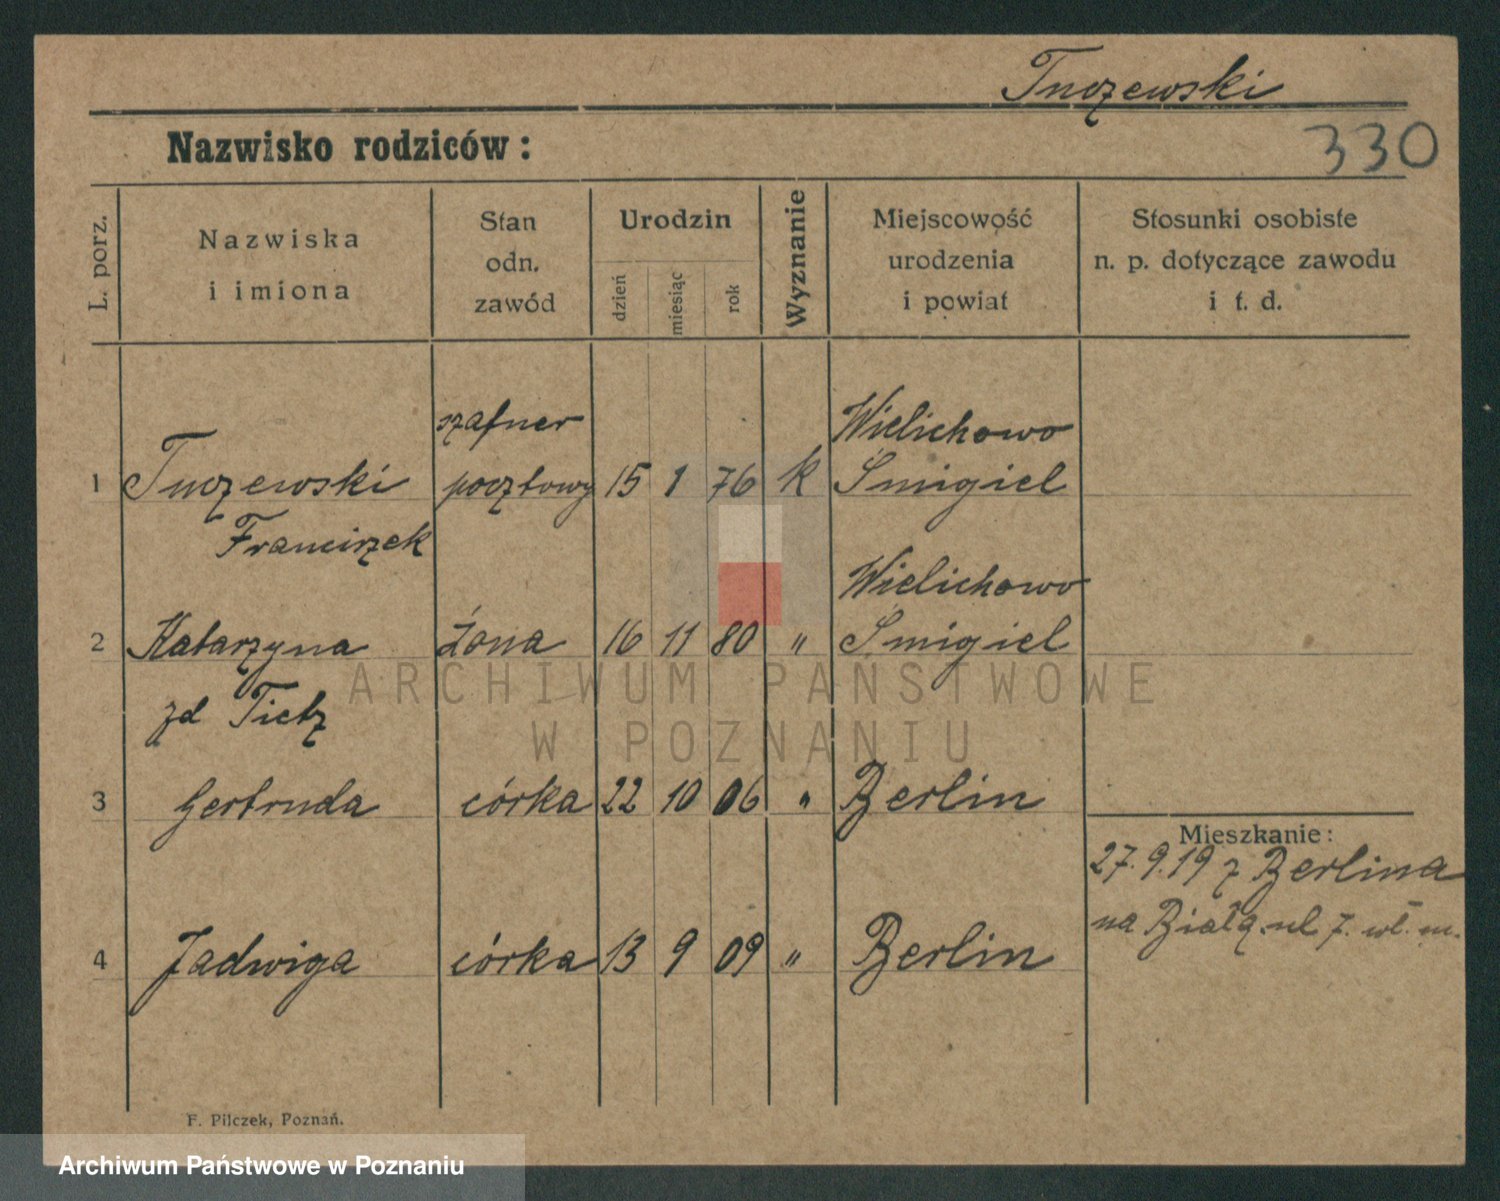 Tuczewski
Nazwisko rodziców:
330
L. porz.
Nazwiska
i imiona
Stan
odn.
zawód
Urodzin
dzień
miesiąc
rok
Wyznanie
Miejscowość
urodzenia
i powiat
Stosunki osobiste
n. p. dotyczące zawodu
i t. d.
1 Tuczewski szafner pocztowy 15 1 76 k Wielichowo Śmigiel
Franciszek
2 Katarzyna żona 16 11 80 " Wielichowo Śmigiel
zd Tietz
3 Gertruda córka 22 10 06 " Berlin
Mieszkanie:
27.9.19 z Berlina
na Białą ul 7. wł. m.
4 Jadwiga córka 13 9 09 " Berlin
F. Pilczek, Poznań.
ARCHIWUM PAŃSTWOWE
W POZNANIU
Archiwum Państwowe w Poznaniu